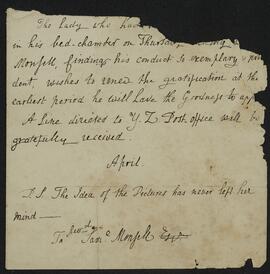 The Lady who had
in his bed-chamber on Thursday
Monsell, finding his conduct so exemplary & pru
dent, wishes to renew the gratification at the
earliest period he will have the Goodness to app
A Line directed to Y Z Post-office will be
gratefully received.
April
P.S. The Idea of the Pictures has never left her
mind —
To Saml. Monsell Esqr.